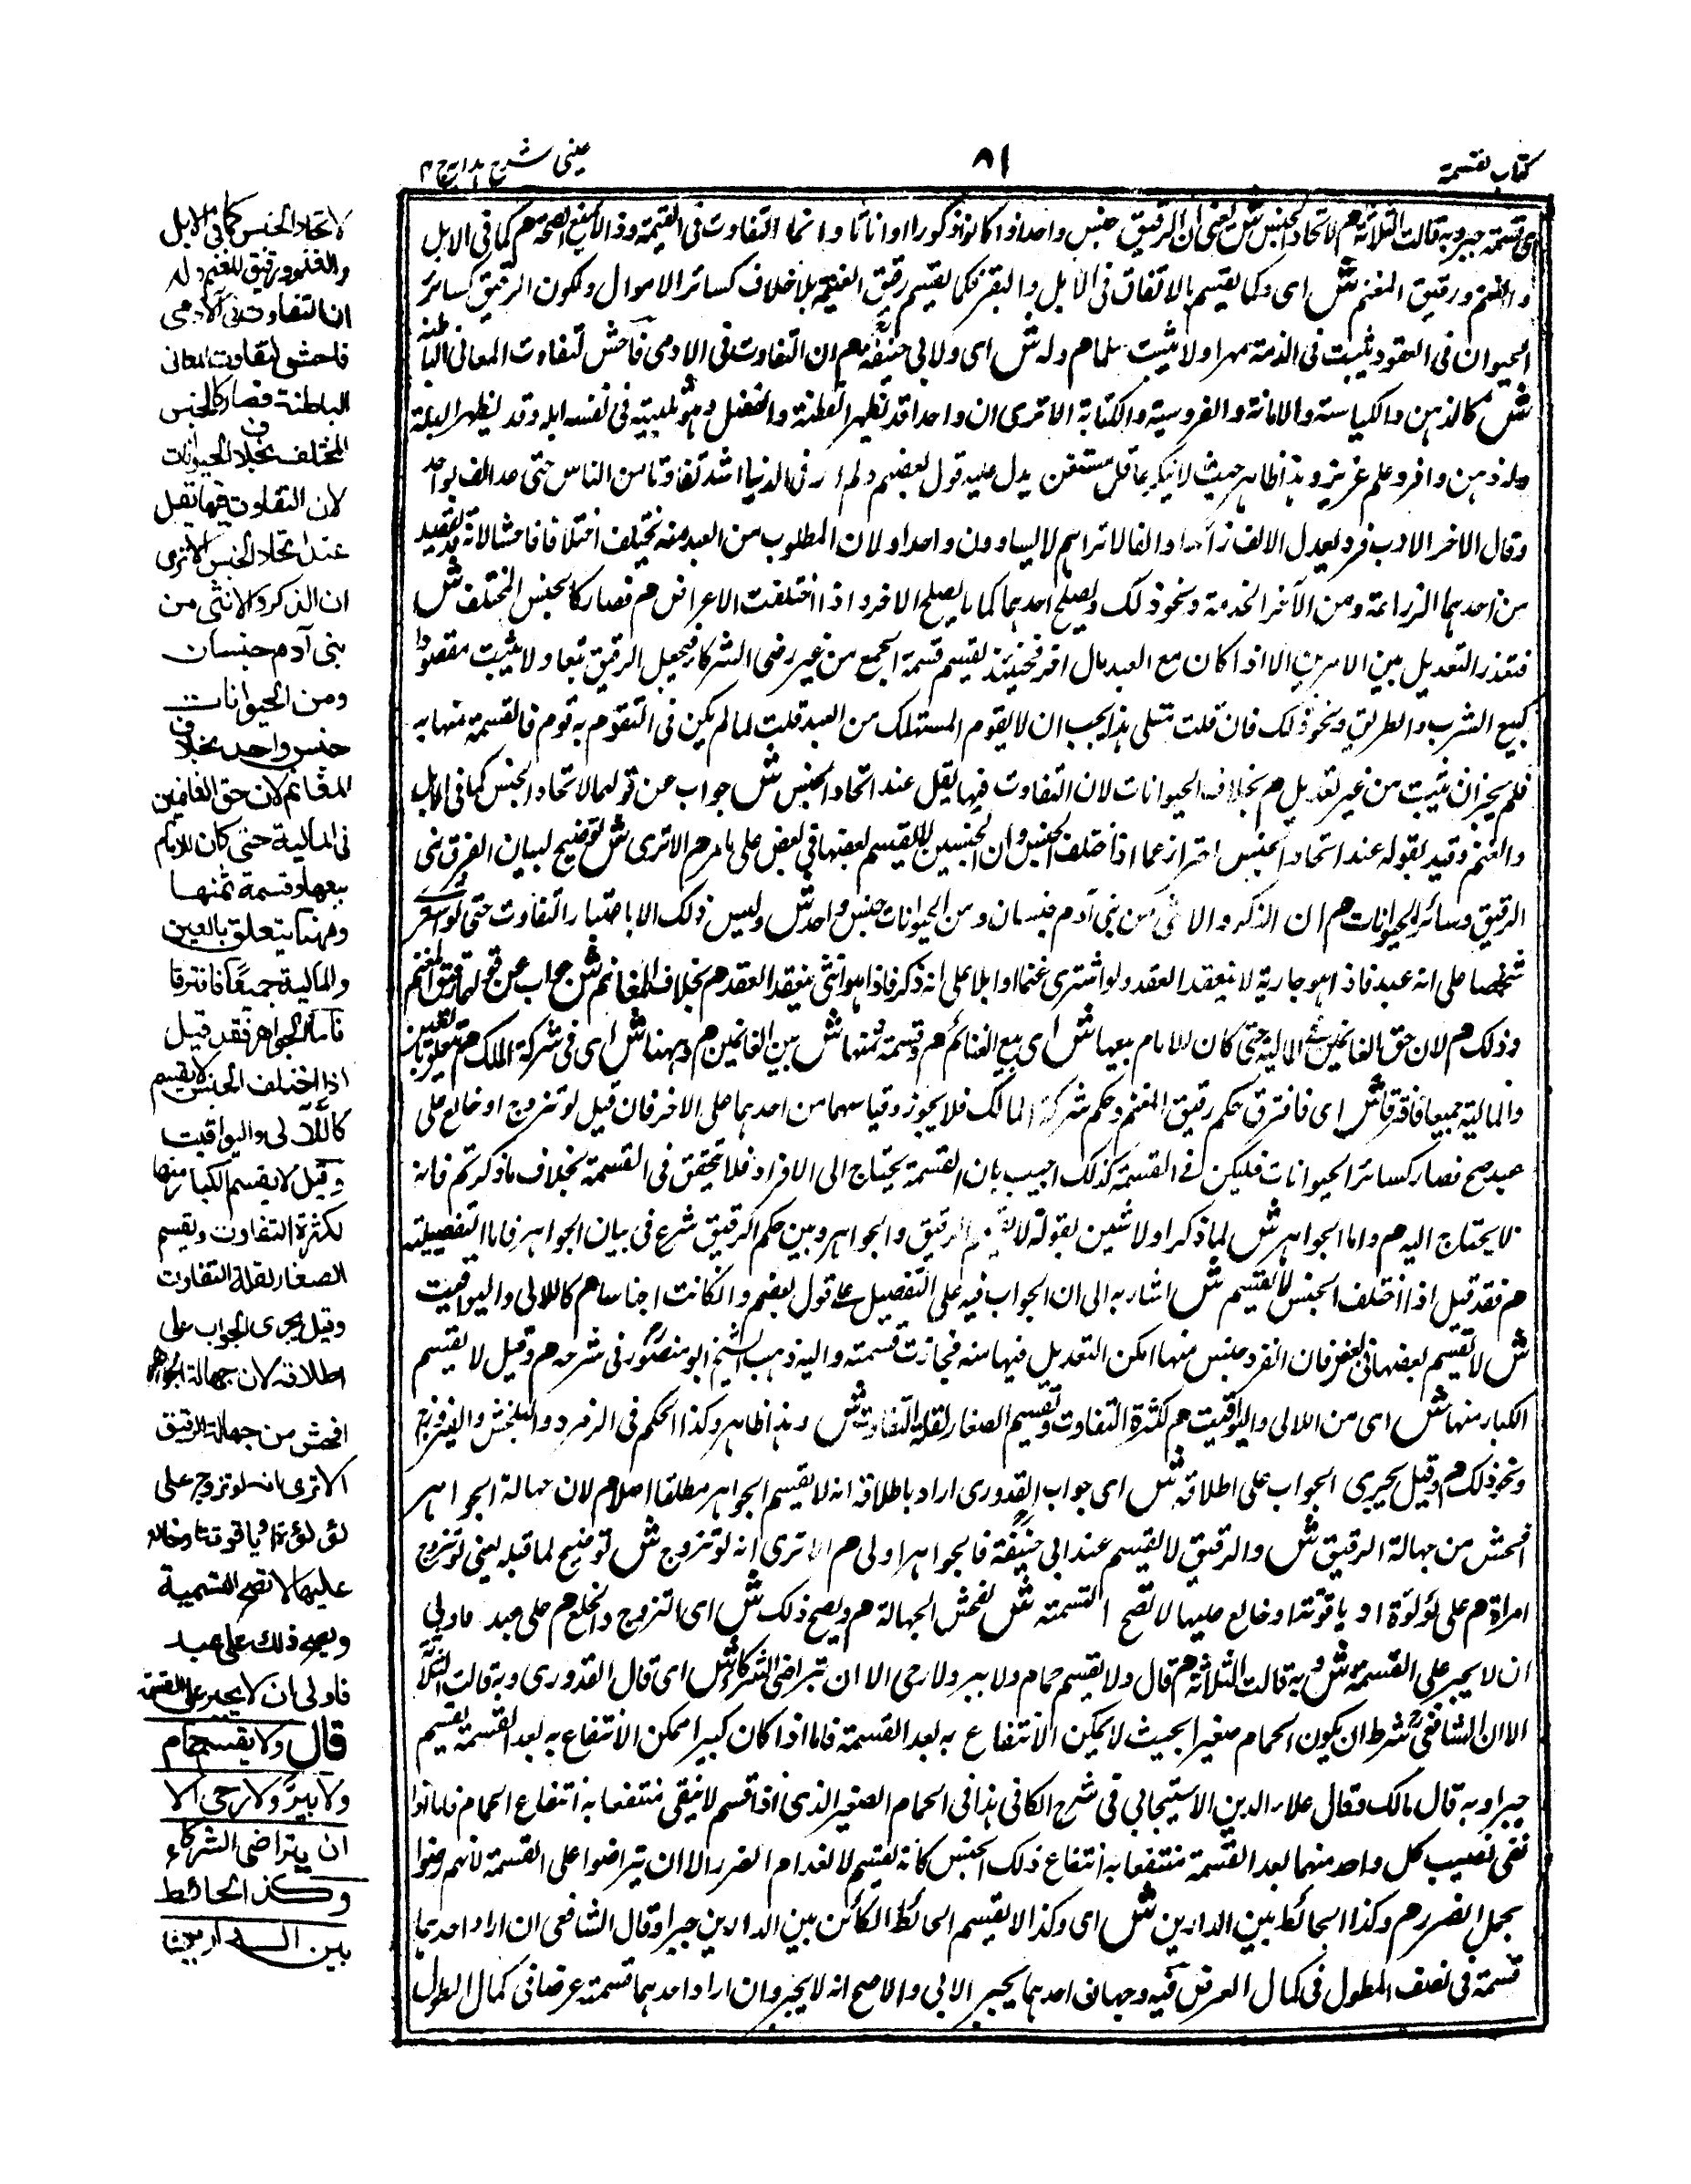 كتاب لقسمة
٨١
عينى شرح هدايه ج ٣
اى قسمة جبر وبه قالت الثلاثة هم لاتحاد الجنس ش يعنى ان الرقيق جنس واحد اذا كانوا ذكورا او اناثا وانما التفاوت فى القيمة وذا لا يمنع الصحة هم كما فى الابل
والغنم ورقيق المغنم ش اى وكما يقسم بالاتفاق فى الابل والبقر فكما يقسم رقيق الغنيمة بلا خلاف كسائر الاموال ولكون الرقيق كسائر
الحيوان فى العقود يثبت فى الذمة مهرا ولا يثبت سلما هم وله ش اى ولابى حنيفة هم ان التفاوت فى الادمى فاحش لتفاوت المعانى الباطنة
ش كالذهن والكياسة والامانة والفروسية والكتابة الا ترى ان واحدا قد يظهر الفطنة والفضل وهو فى نفسه ابله وقد يظهر البله
وله ذهن وافر وعلم غزير وهذا ظاهر حيث لا ينكر يدل عليه قول بعضهم ولم ار فى الدنيا اشد تفاوتا من الناس حتى عد الف بواحد
وقال الاخر الا رب فرد يعدل الالف زائدا والفا لا تراهم لا يساوون واحدا ولان المطلوب من العبد منه تختلف اختلافا فاحشا لانه قد يقصد
من احدهما الزراعة ومن الآخر الخدمة ونحو ذلك ويصلح احدهما لما لا يصلح الاخر واذا اختلفت الاغراض هم فصار كالجنس المختلف ش
فتعذر التعديل بين الامرين الا اذا كان مع العبد مال اخر فحينئذ يقسم قسمة الجمع من غير رضى الشركاء فيجعل الرقيق تبعا ولا يثبت مقصودا
كبيع الشرب والطريق ونحو ذلك فان قلت على هذا يجب ان لا يقوم المستهلك من العبد قلت لما لم يكن فى التقوم به توم فالقسمة منها به
فلم يجز ان يثبت من غير تعديل هم بخلاف الحيوانات لان التفاوت فيها يقل عند اتحاد الجنس ش جواب عن قولهما لاتحاد الجنس كما فى الابل
والغنم وقيد بقوله عند اتحاد الجنس احتراز عما اذا اختلف الجنس وان الجنسين لا يقسم بعضها فى بعض على ما مر هم الا ترى ش توضيح لبيان الفرق بنى
الرقيق وسائر الحيوانات هم ان الذكر والانثى من بنى آدم جنسان ومن الحيوانات جنس واحد ش وليس ذلك الا باعتبار التفاوت حتى لو اشترى
شخصا على انه عبد فاذا هو جارية لا ينعقد العقد ولو اشترى غنما او ابلا على انه ذكر فاذا هو انثى ينعقد العقد هم بخلاف المغانم ش جواب عن قولهما ورقيق المغنم
وذلك هم لان حق الغانمين فى المالية حتى كان للامام بيعها ش اى بيع الغنائم هم وقسمة ثمنها ش بين الغانمين هم وههنا ش اى فى شركة الملك هم يتعلق بالعين
والمالية جميعا فافترقا ش اى فافترق حكم رقيق المغنم وحكم شركة المالك فلا يجوز وقياسهما من احدهما على الاخر فان قيل لو تزوج او خالع على
عبد صح فصار كسائر الحيوانات فليكن فى القسمة كذلك اجيب بان القسمة يحتاج الى الافراد فلا يتحقق فى القسمة بخلاف ما ذكرتم فانه
لا يحتاج اليه هم واما الجواهر ش لما ذكر اولا شيئين بقوله لا يقسم الرقيق والجواهر وبين حكم الرقيق شرع فى بيان الجواهر فاما التفصيلية
هم فقد قيل اذا اختلف الجنس لا يقسم ش اشار به الى ان الجواب فيه على التفصيل على قول بعضهم وان كانت اجناسا هم كاللالى واليواقيت
ش لا يقسم بعضها فى بعض فان انفرد جنس منها امكن التعديل فيها منه فجازت قسمته واليه ذهب الشيخ ابو منصور فى شرحه هم وقيل لا يقسم
الكبار منها ش اى من اللالى واليواقيت هم لكثرة التفاوت وتقسيم الصغار لقلة التفاوت ش وهذا ظاهر وكذا الحكم فى الزمرد والبلخش والفيروزج
ونحو ذلك هم وقيل يجرى الجواب على اطلاقه ش اى جواب القدورى اراد باطلاقه انه لا يقسم الجواهر مطلقا اصلا هم لان جهالة الجواهر
افحش من جهالة الرقيق ش والرقيق لا يقسم عند ابى حنيفة فالجواهر اولى هم الا ترى انه لو تزوج ش توضيح لما قبله يعنى لو تزوج
امراة هم على لؤلؤة او ياقوتة او خالع عليها لا تصح القسمته ش لفحش الجهالة هم ويصح ذلك ش اى التزوج والخلع هم على عبد فاولى
ان لا يجبر على القسمة ش وبه قالت الثلاثة هم قال ولا يقسم حمام ولا بير ولا رحى الا ان تتراضى الشركاء ش اى قال القدورى وبه قالت الثلاثة
الا ان الشافعى شرط ان يكون الحمام صغيرا بحيث لا يمكن الانتفاع به بعد القسمة فاما اذا كان كبيرا ممكن الانتفاع به بعد القسمة يقسم
جبرا وبه قال مالك وقال علاء الدين الاسبيجابى فى شرح الكافى هذا فى الحمام الصغير الذى اذا قسم لا يبقى منتفعا به انتفاع الحمام فاما اذا
بقى نصيب كل واحد منهما بعد القسمة منتفعا به انتفاع ذلك الجنس كانه يقسم لانعدام الضرر الا ان يتراضوا على القسمة لانهم رضوا
بحمل الضرر هم وكذا الحائط بين الدارين ش اى وكذا لا يقسم الحائط الكائن بين الدارين جبرا وقال الشافعى ان اراد احدهما
قسمة فى نصف الطول فى كمال العرض فيه وجهان احدهما يجبر الابى والاصح انه لا يجبر وان اراد احدهما قسمته عرضا فى كمال الطول
لاتحاد الجنس كما فى الابل
والغنم ورقيق المغنم وله
ان التفاوت فى الآدمى
فاحش لتفاوت المعانى
الباطنة فصار كالجنس
المختلف بخلاف الحيوانات
لان التفاوت فيها يقل
عند اتحاد الجنس الا ترى
ان الذكر والانثى من
بنى آدم جنسان
ومن الحيوانات
جنس واحد بخلاف
المغانم لان حق الغانمين
فى المالية حتى كان للامام
بيعها وقسمة ثمنها
وههنا يتعلق بالعين
والمالية جميعًا فافترقا
فاما الجواهر فقد قيل
اذا اختلف الجنس لا يقسم
كاللآلى واليواقيت
وقيل لا يقسم الكبار منها
لكثرة التفاوت ويقسم
الصغار لقلة التفاوت
وقيل يجرى الجواب على
اطلاقه لان جهالة الجواهر
افحش من جهالة الرقيق
الا ترى انه لو تزوج على
لؤلؤة او ياقوتة او خالع
عليها لا تصح التسمية
ويصح ذلك على عبد
فاولى ان لا يجبر على القسمة
قال ولا يقسم حمام
ولا بيرٌ ولا رحى الا
ان يتراضى الشركاء
وكذا الحائط
بين الدارين